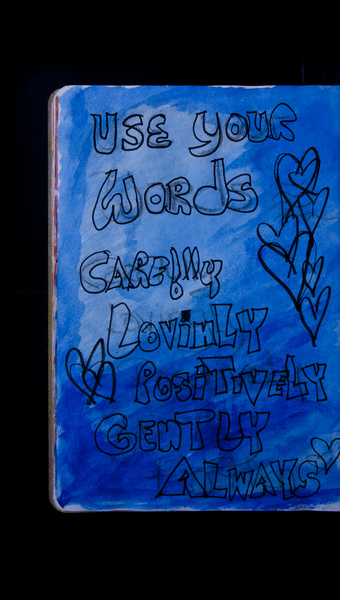 USE YOUR
WORDS
CAREfully
LOViNLY
POSiTiVELY
GENTLY
ALWAYS